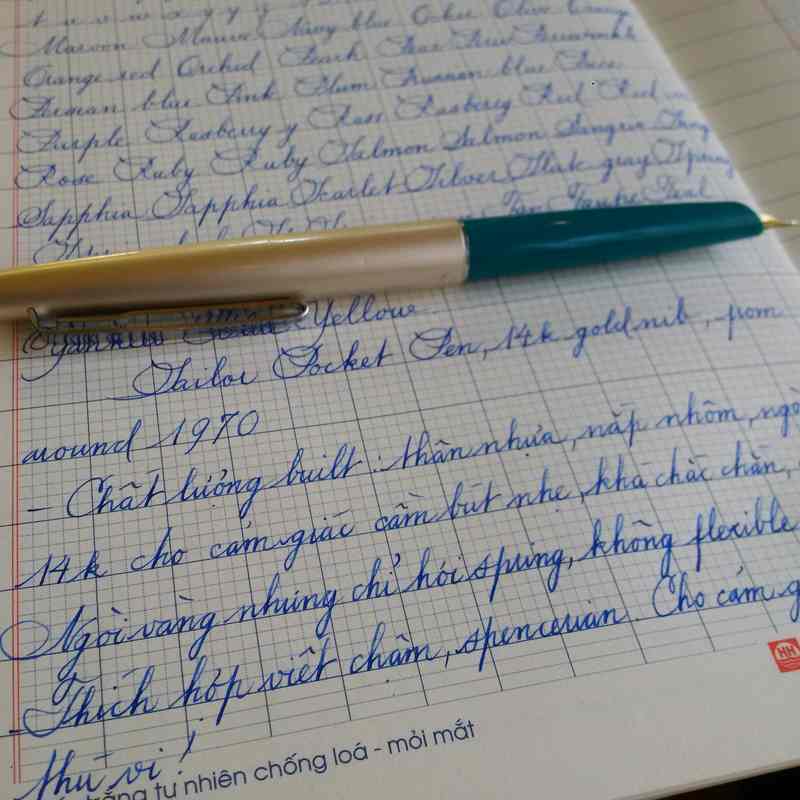 Maroon Mauve Navy blue Ocher Olive Orange
Orange red Orchid Peach Pear
Persian blue Pink Plum Prussian blue Puce
Purple Raspberry y Rose Raspberry Red Red
Rose Ruby Ruby Salmon Salmon Sangria
Sapphia Sapphia Scarlet Silver Slate gray Spring
Tan Taupe Teal
Yellow
Sailor Pocket Pen, 14k gold nib, from
around 1970
- Chất lượng built: thân nhựa, nắp nhôm, ngòi
14k cho cảm giác cầm bút nhẹ, khá chắc chắn,
Ngòi vàng nhưng chỉ hơi spring, không flexible
- Thích hợp viết chấm, spencerian. Cho cảm g
thú vị!
HH
trắng tự nhiên chống loá - mỏi mắt